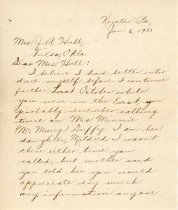 Jan 6, 1921
Mrs. J. A. Hull,
Tulsa, Okla.
Dear Mrs. Hull:
I believe I had better intro
duce myself before I continue
further. Last October while
you were in the East you
probably remember calling
twice on Mrs. Minnie
Mc Murry Duffy. I am her
daughter, Mildred. I wasn't
there either time you
called, but mother said
you told her you would
appreciate very much
any information anyone